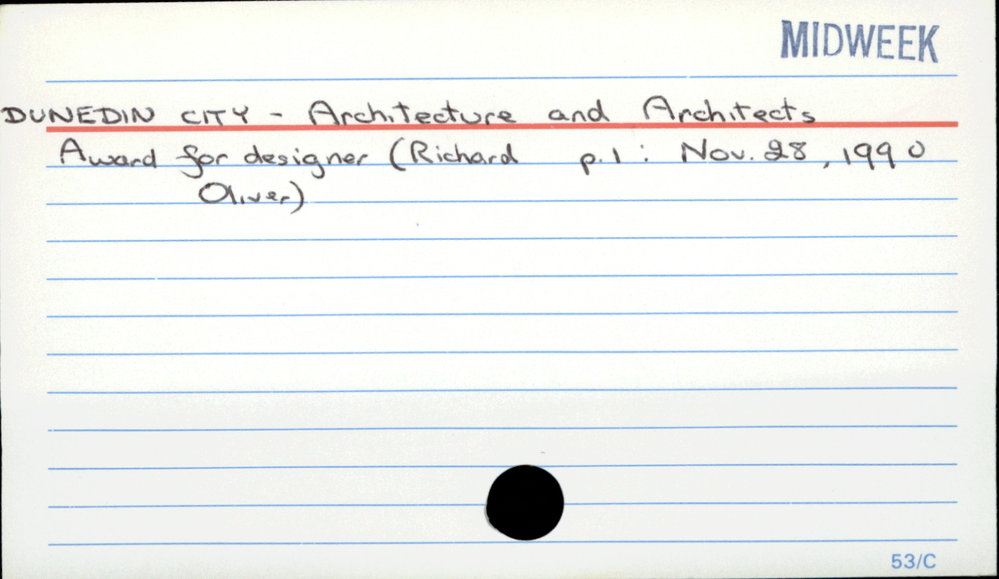 MIDWEEK
DUNEDIN CITY - Architecture and Architects
Award for designer (Richard p.1 : Nov. 28, 1990
Oliver)
53/C